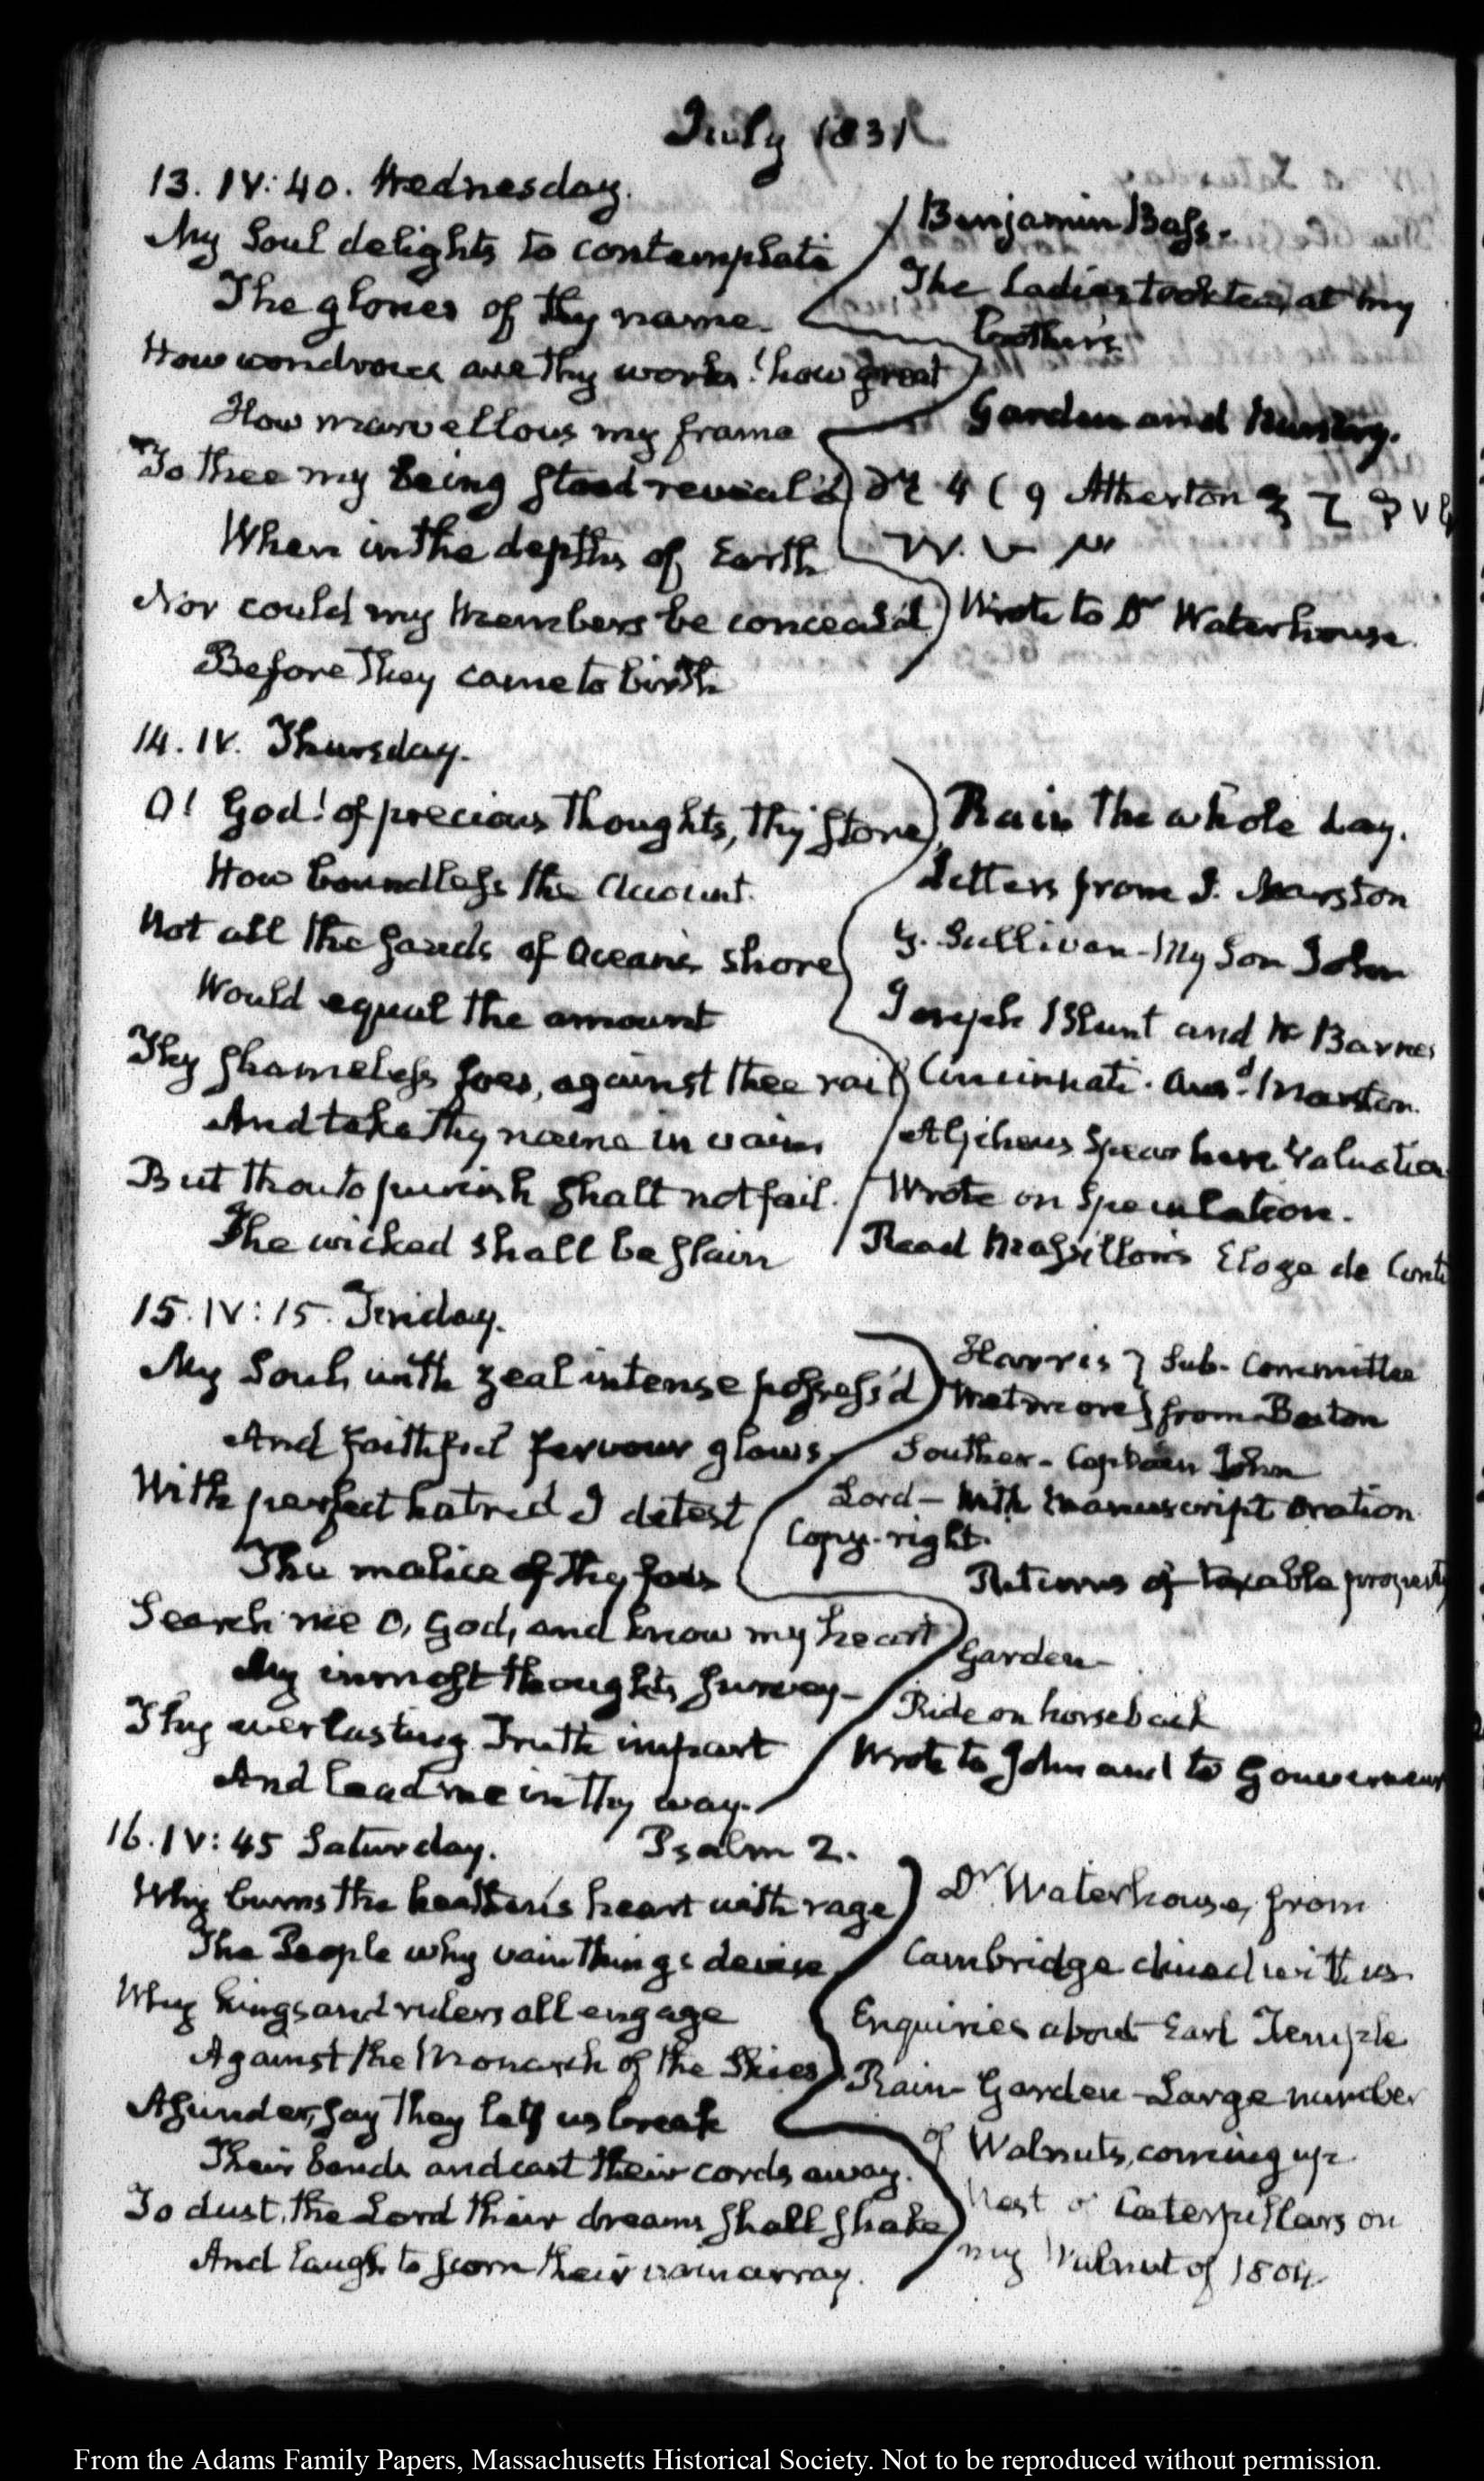 July 1831
13. IV: 40. Wednesday.
My Soul delights to contemplate
The glories of thy name.
How wondrous are thy works! how great
How marvellous my frame
To thee my being stood reveal'd
When in the depths of Earth
Nor could my members be conceal'd
Before they came to birth
Benjamin Bass.
The Ladies took tea, at my
brother's
Garden and Nursery.
Atherton
Wrote to Dr Waterhouse.
14. IV. Thursday.
O! God! of precious thoughts, thy store
How boundless the amount.
Not all the sands of Ocean's shore
Would equal the amount
Thy shameless foes, against thee rail
And take thy name in vain
But thou to punish shalt not fail.
The wicked shall be slain
Rain the whole day.
Letters from J. Marston
G. Sullivan - My Son John
Joseph Blunt and Barnes
Cincinnati. Ansd. Marston.
Alpheus Spear here. Valuation
Wrote on Speculation.
Read Massillon's Eloge de Conti
15. IV: 15. Friday.
My Soul, with zeal intense possess'd
And faithful fervour glows.
With perfect hatred I detest
The malice of thy foes
Search me O, God, and know my heart
My inmost thoughts survey-
Thy everlasting Truth impart
And lead me in thy way.
Harris } Sub-Committee
Wetmore } from Boston
Souther - Captain John
Lord - with manuscript oration
Copy-right.
Returns of taxable property
Garden
Ride on horseback
Wrote to John and to Gouverneur
16. IV: 45 Saturday. Psalm 2.
Why burns the heathen's heart with rage
The People why vain things devise
Why kings and rulers all engage
Against the Monarch of the Skies
Asunder, say they let us break
Their bands and cast their cords away.
To dust, the Lord their dreams shall shake
And laugh to scorn their vain array.
Dr Waterhouse, from
Cambridge dined with us
Enquiries about Earl Temple
Rain - Garden - Large number
of Walnuts, coming up
Nest of Caterpillars on
my Walnut of 1804
From the Adams Family Papers, Massachusetts Historical Society. Not to be reproduced without permission.